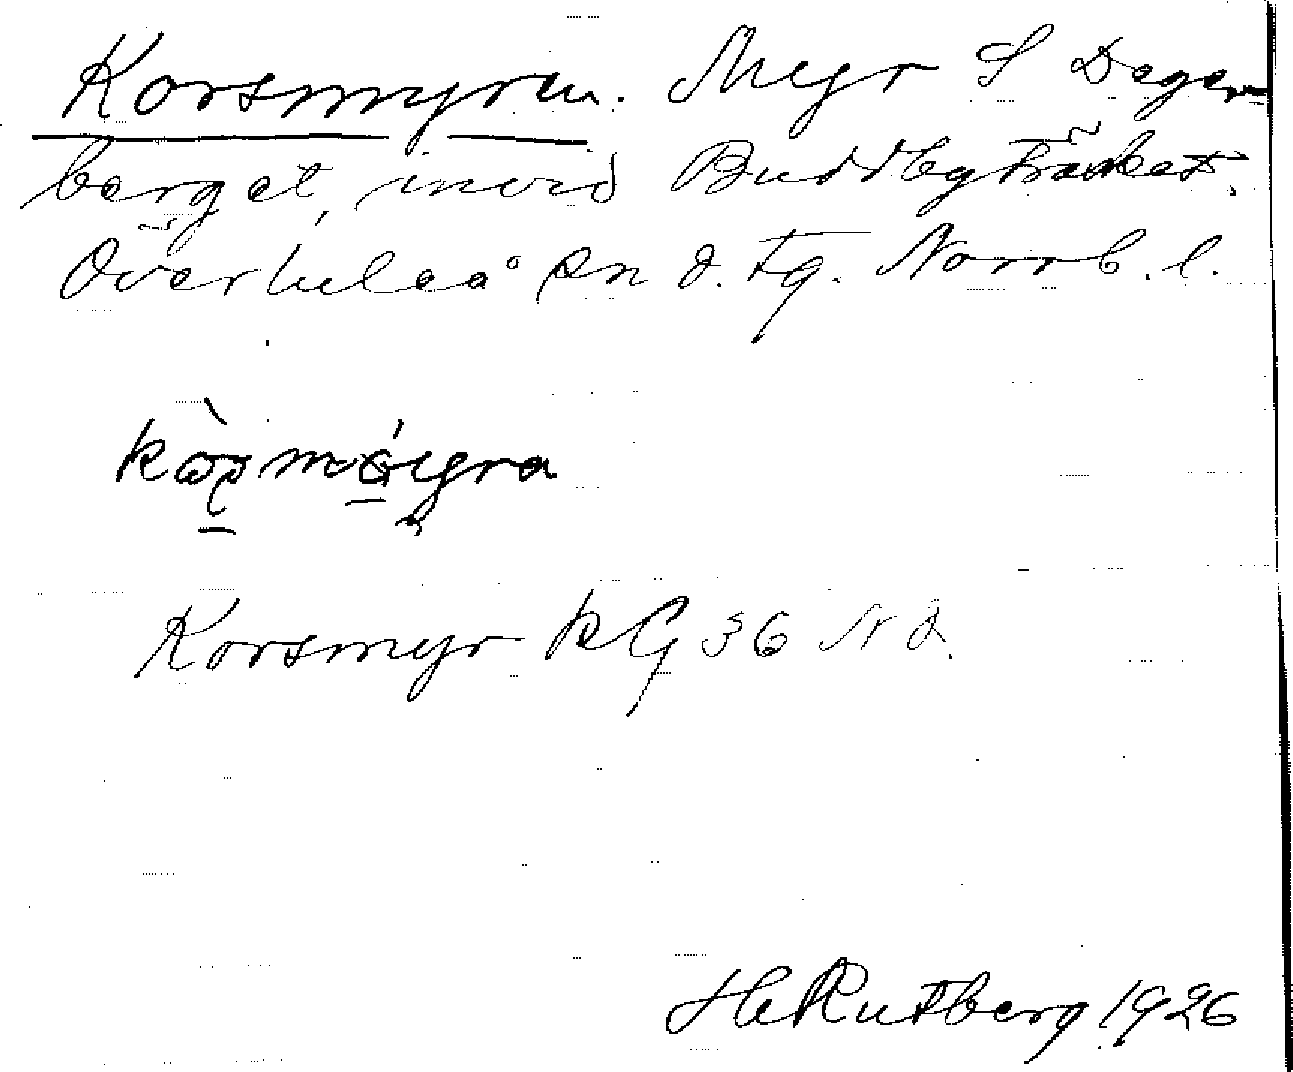 Korsmyren. Myr S Deger
berget, invid Buddbyträsket.
Överluleå sn d. tg. Norrb. l.
Korsmyr kG 36 NÖ.
H Rutberg 1926